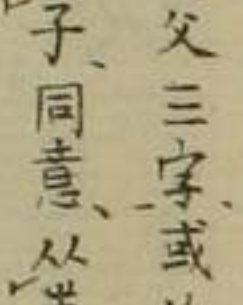 父三字或
子、同意、从